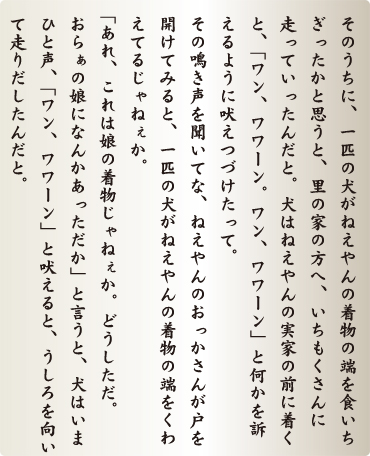 そのうちに、一匹の犬がねえやんの着物の端を食いち
ぎったかと思うと、里の家の方へ、いちもくさんに
走っていったんだと。犬はねえやんの実家の前に着く
と、「ワン、ワワーン。ワン、ワワーン」と何かを訴
えるように吠えつづけたって。
その鳴き声を聞いてな、ねえやんのおっかさんが戸を
開けてみると、一匹の犬がねえやんの着物の端をくわ
えてるじゃねぇか。
「あれ、これは娘の着物じゃねぇか。どうしただ。
おらぁの娘になんかあっただか」と言うと、犬はいま
ひと声、「ワン、ワワーン」と吠えると、うしろを向い
て走りだしたんだと。